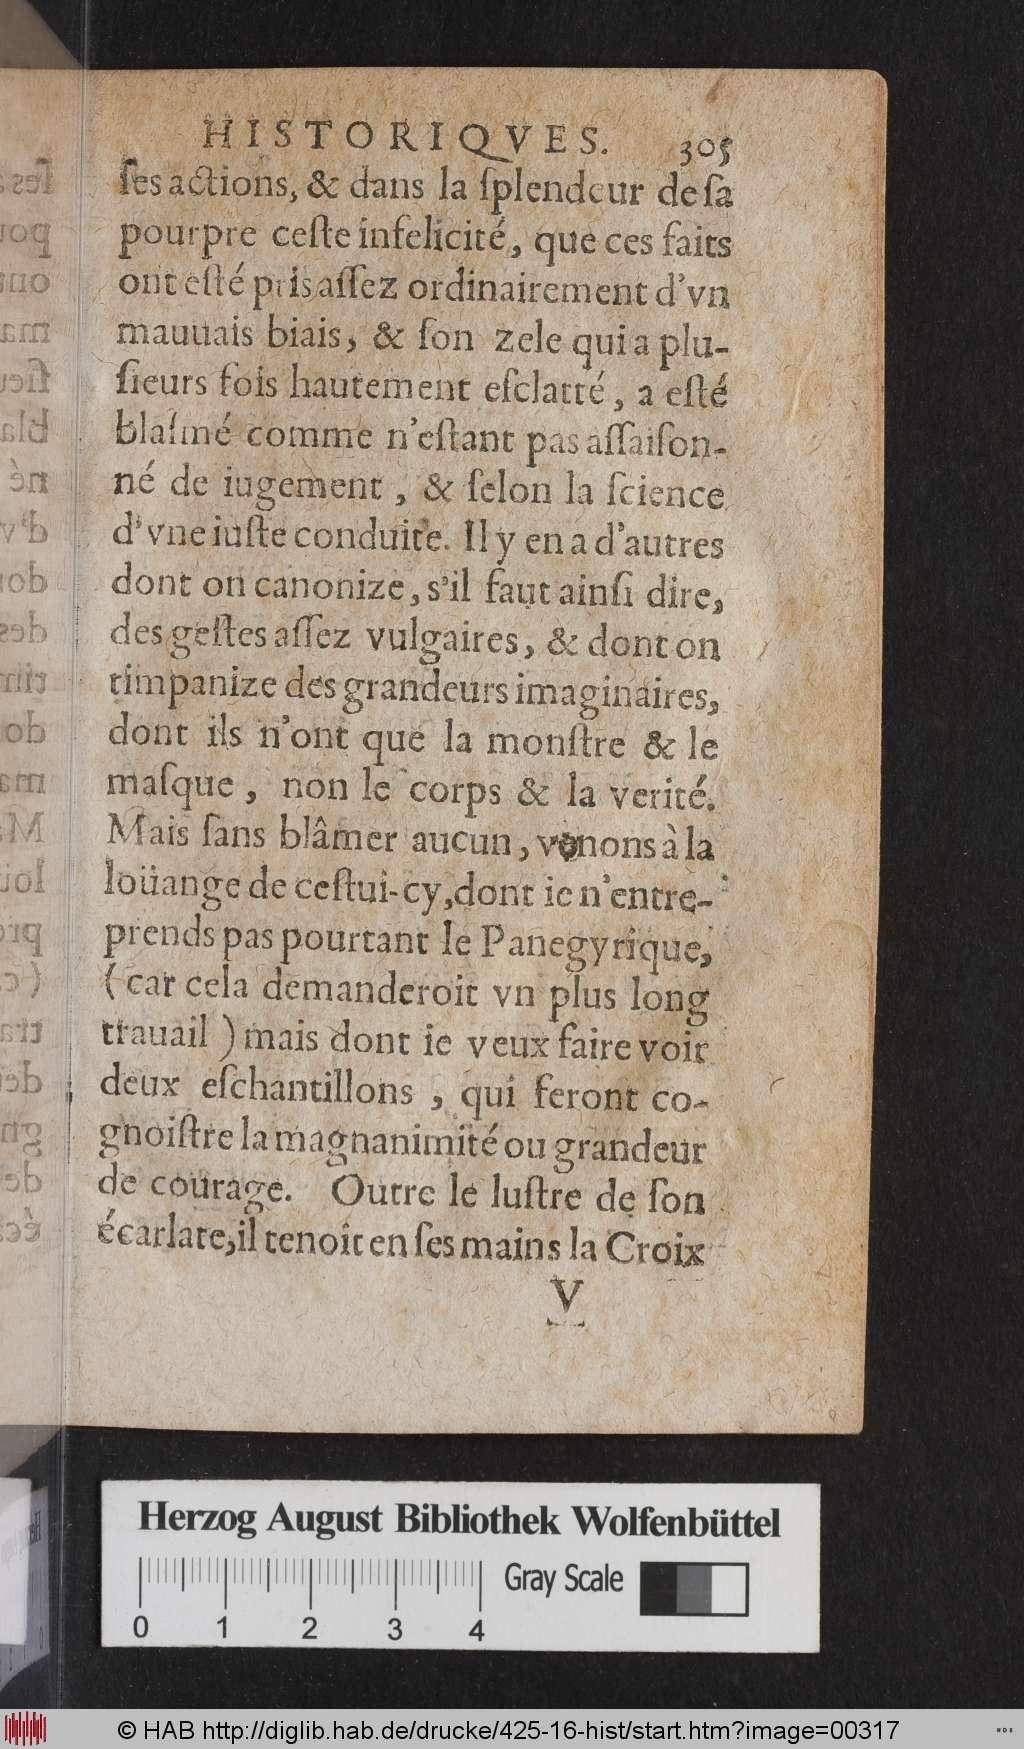 HISTORIQVES. 305
ſes actions, & dans la ſplendeur de ſa
pourpre ceſte infelicité, que ces faits
ont eſté pris aſſez ordinairement d'vn
mauuais biais, & ſon zele qui a plu-
ſieurs fois hautement eſclatté, a eſté
blaſmé comme n'eſtant pas aſſaiſon-
né de iugement, & ſelon la ſcience
d'vne iuſte conduite. Il y en a d'autres
dont on canonize, s'il faut ainſi dire,
des geſtes aſſez vulgaires, & dont on
timpanize des grandeurs imaginaires,
dont ils n'ont que la monſtre & le
maſque, non le corps & la verité.
Mais ſans blâmer aucun, venons à la
loüange de ceſtui-cy, dont ie n'entre-
prends pas pourtant le Panegyrique,
(car cela demanderoit vn plus long
trauail) mais dont ie veux faire voir
deux eſchantillons, qui feront co-
gnoiſtre la magnanimité ou grandeur
de courage. Outre le luſtre de ſon
écarlate, il tenoit en ſes mains la Croix
V
Herzog August Bibliothek Wolfenbüttel
Gray Scale
0 1 2 3 4
© HAB http://diglib.hab.de/drucke/425-16-hist/start.htm?image=00317